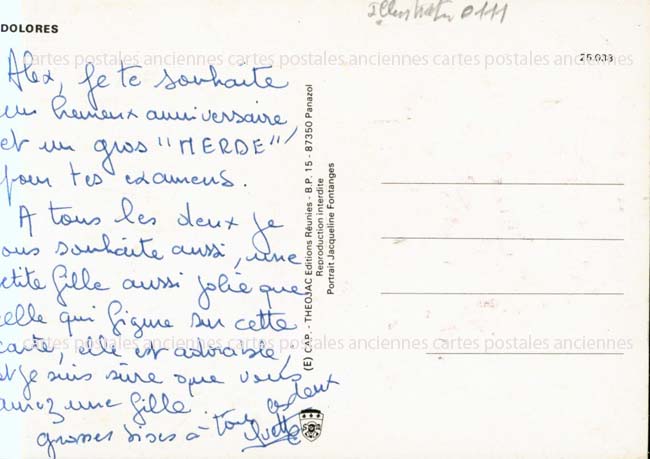 DOLORES
Illustrateur 0111
cartes postales anciennes cartes postales anciennes cartes postales anciennes
26.033
Alex, je te souhaite
un heureux anniversaire,
et un gros "MERDE"
pour tes examens.
A tous les deux je
ous souhaite aussi, une
etite fille aussi jolie que
elle qui figure sur cette
carte, elle est adorable,
et je suis sûre que vous
aurez une fille.
grosses bises à tous les deux
Yvette
(E) CAP. - THEOJAC Editions Réunies - B.P. 15 - 87350 Panazol
Reproduction interdite
Portrait Jacqueline Fontanges
cartes postales anciennes cartes postales anciennes cartes postales anciennes